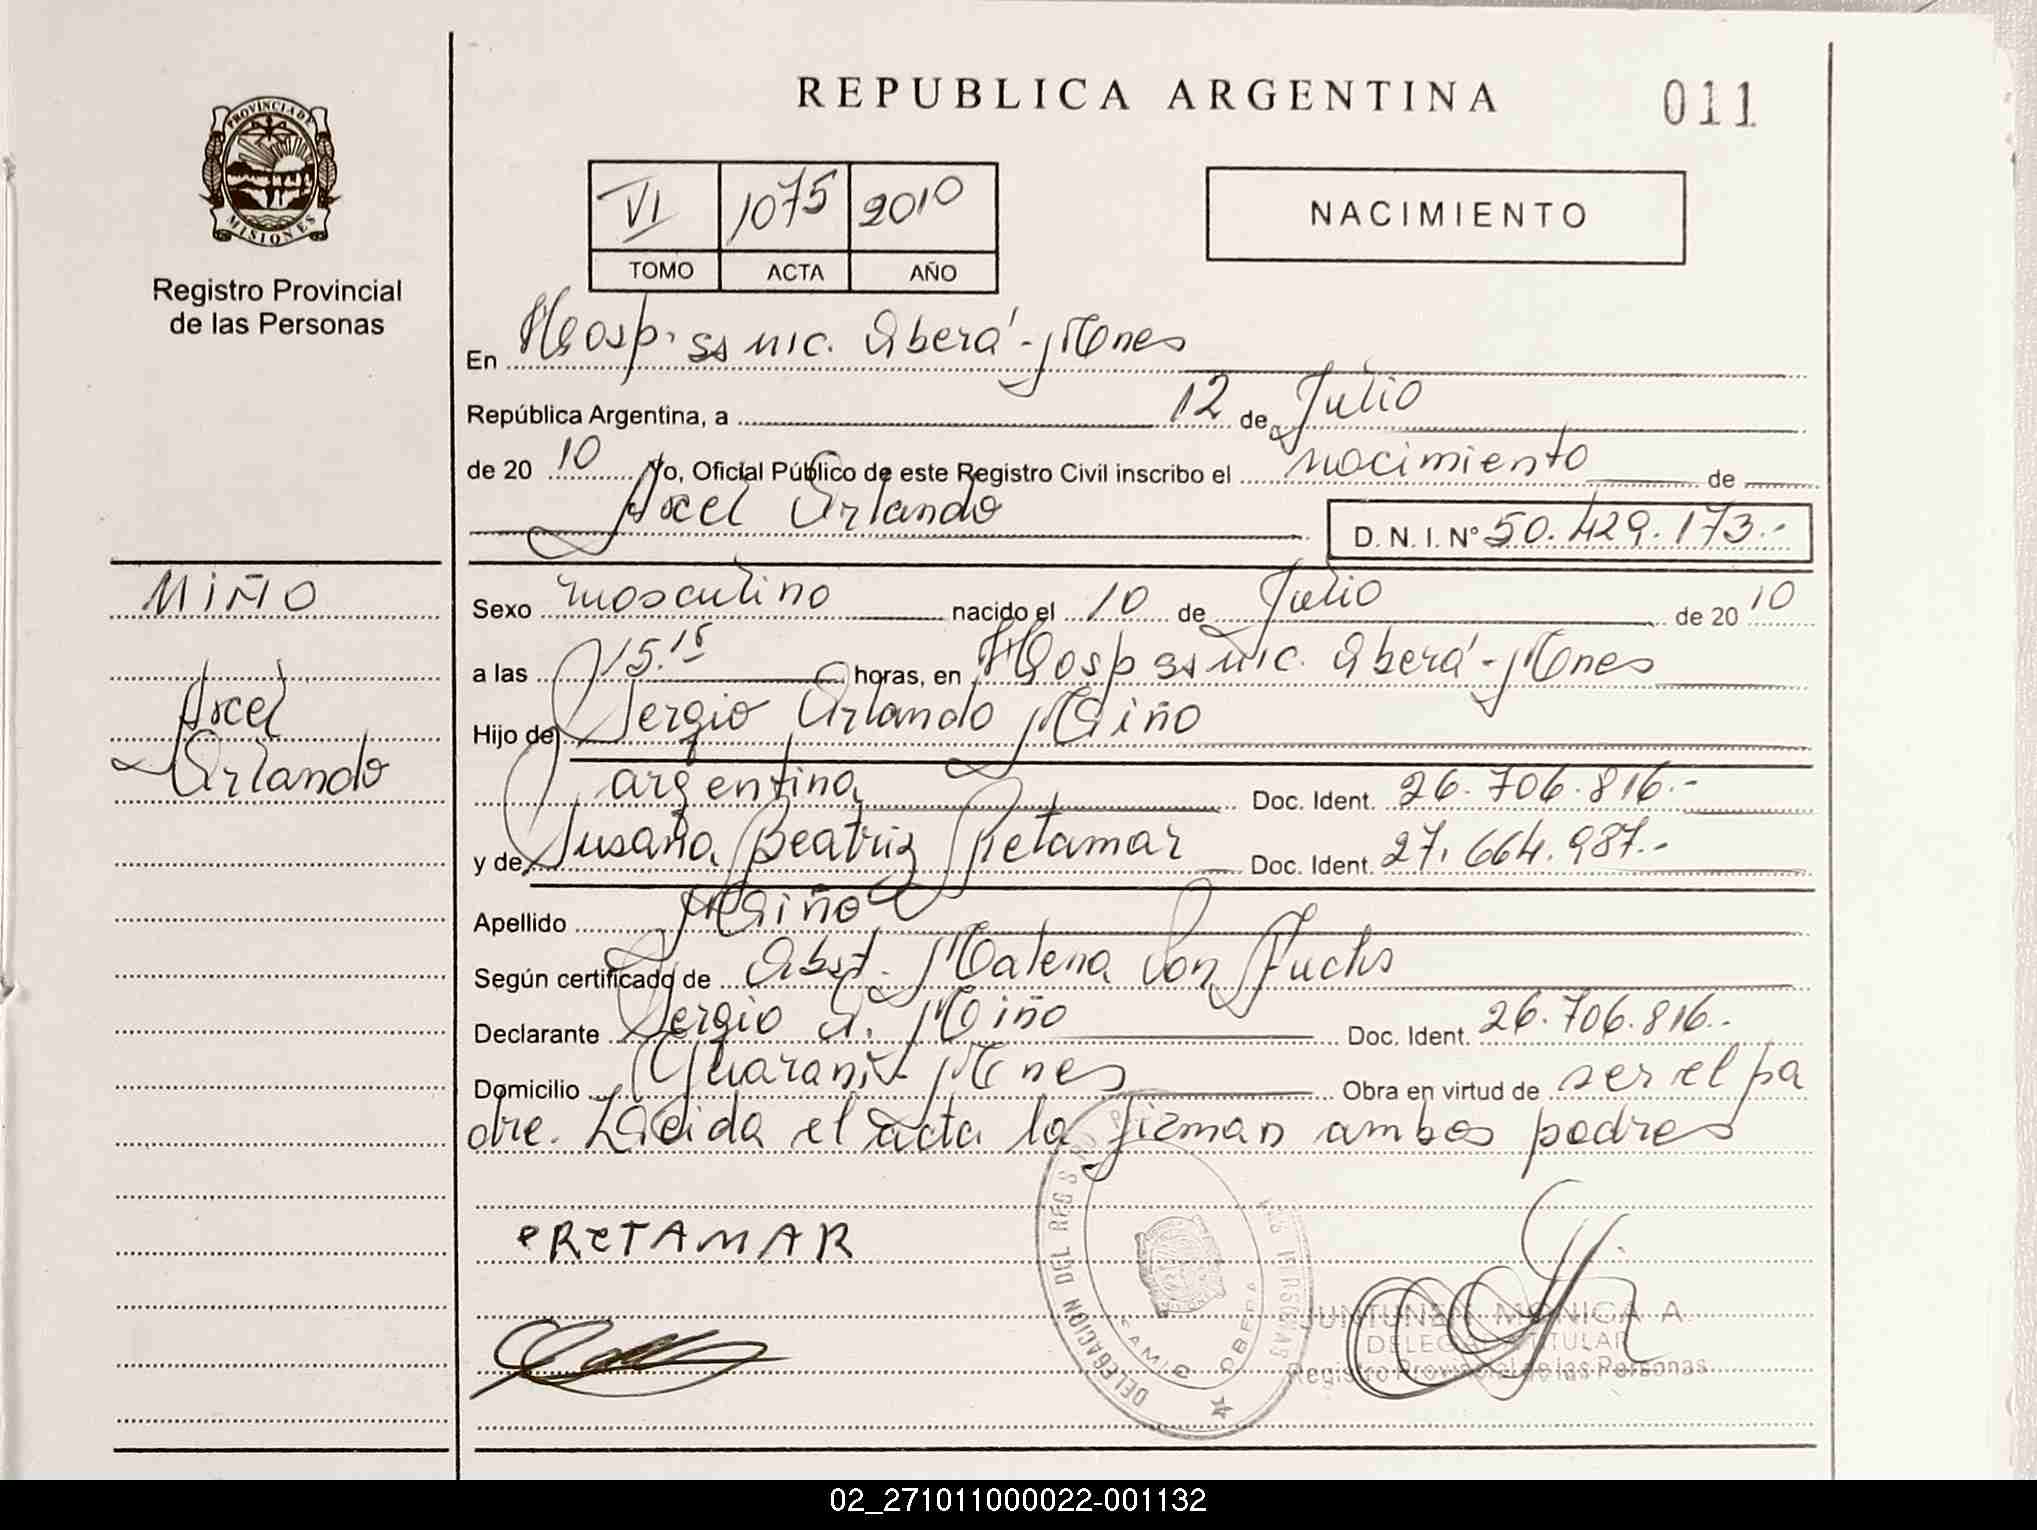 REPUBLICA ARGENTINA
011
PROVINCIA DE
MISIONES
Registro Provincial
de las Personas
VI 1075 2010
TOMO ACTA AÑO
NACIMIENTO
En Hosp. ss mic. Oberá - Mnes
República Argentina, a 12 de Julio
de 20 10 Yo, Oficial Público de este Registro Civil inscribo el nacimiento de
Axel Orlando
D. N. I. Nº 50.429.173.-
MIÑO
Axel
Orlando
Sexo masculino nacido el 10 de Julio de 20 10
a las 15.15 horas, en Hosp ss mic. Oberá - Mnes
Hijo de Sergio Orlando Miño
argentina Doc. Ident. 26.706.816.-
y de Susana Beatriz Retamar Doc. Ident. 27.664.987.-
Apellido Miño
Según certificado de Obst. Malena Von Fuchs
Declarante Sergio O. Miño Doc. Ident. 26.706.816.-
Domicilio Guaraní Mnes Obra en virtud de ser el pa
dre. Leida el acta la firman ambos padres
RETAMAR
DELEGACION DEL REG
LAS PERSONAS
OBERA
JUNTUNEN MONICA A
DELEGADA TITULAR
Registro Provincial de las Personas
02_271011000022-001132